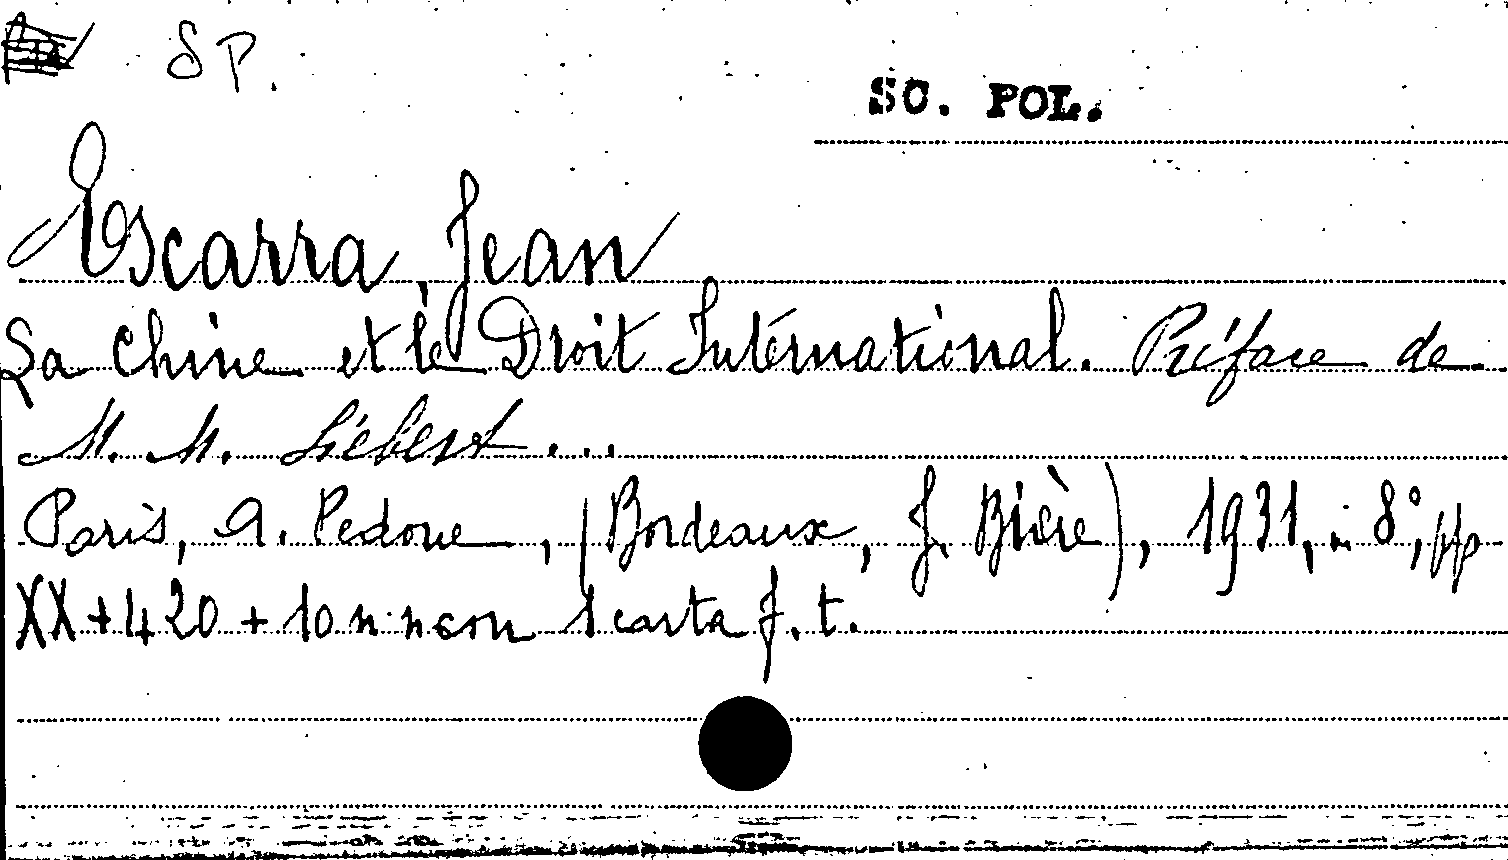 SP.
SC. POL.
Escarra, Jean
La Chine et le Droit International. Préface de
M. M. Siebert...
Paris, A. Pedone, (Bordeaux, J. Bière), 1931, in 8°, pp
XX + 420 + 10 n. n con 1 carta f. t.